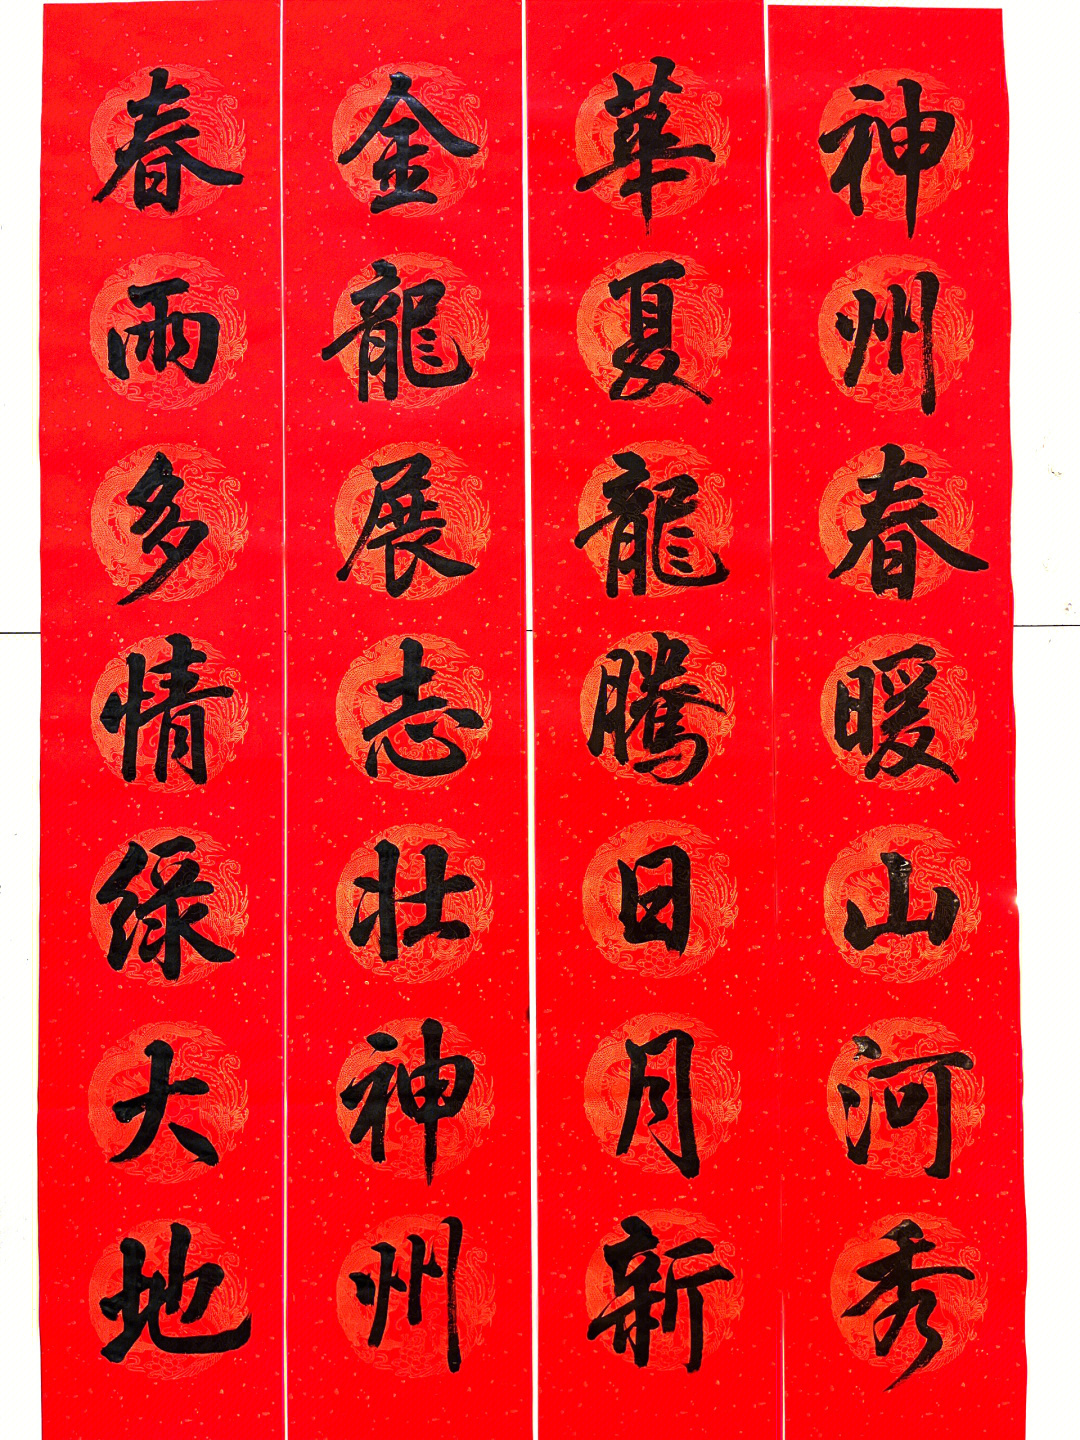 神州春暖山河秀
華夏龍騰日月新
金龍展志壯神州
春雨多情綠大地